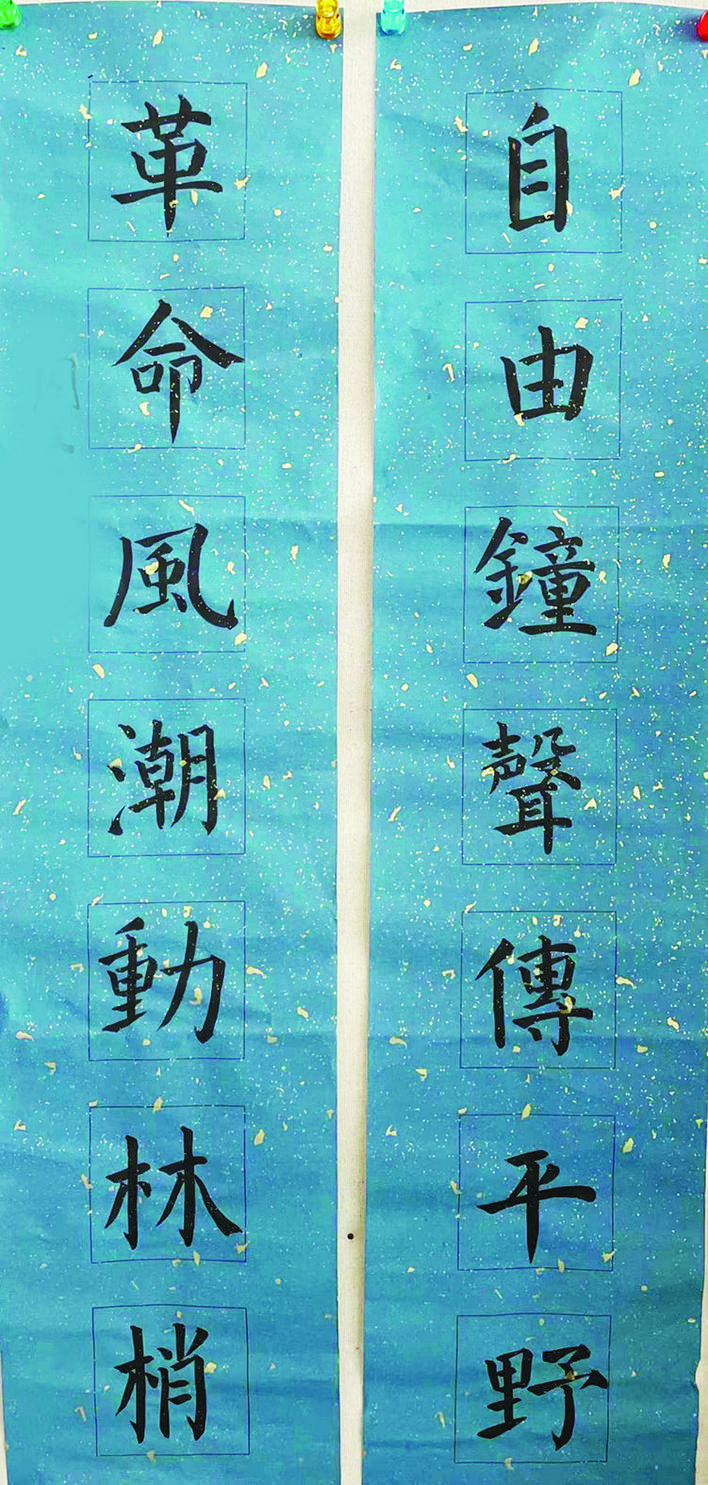 自由鐘聲傳平野
革命風潮動林梢